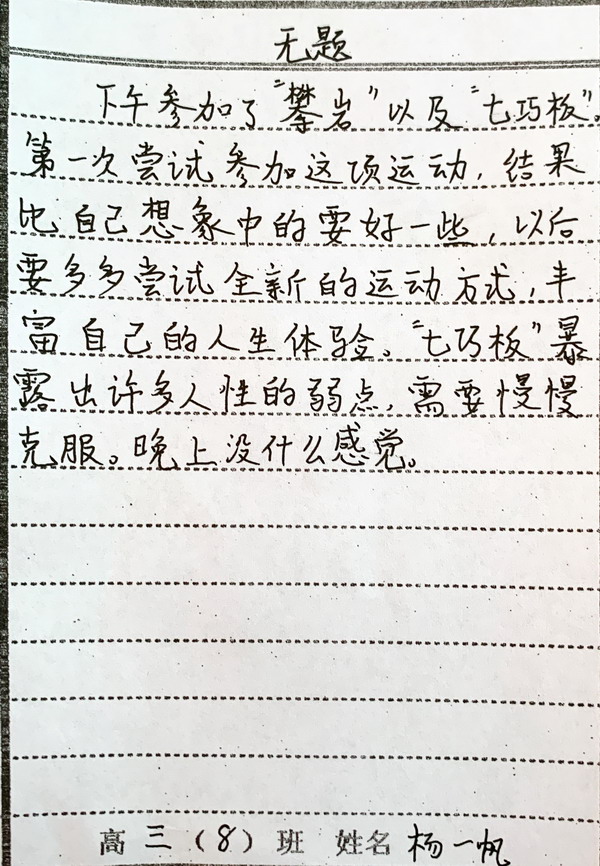 无题
下午参加了“攀岩”以及“七巧板”。
第一次尝试参加这项运动，结果
比自己想象中的要好一些，以后
要多多尝试全新的运动方式，丰
富自己的人生体验。“七巧板”暴
露出许多人性的弱点，需要慢慢
克服。晚上没什么感觉。
高三（8）班 姓名 杨一帆